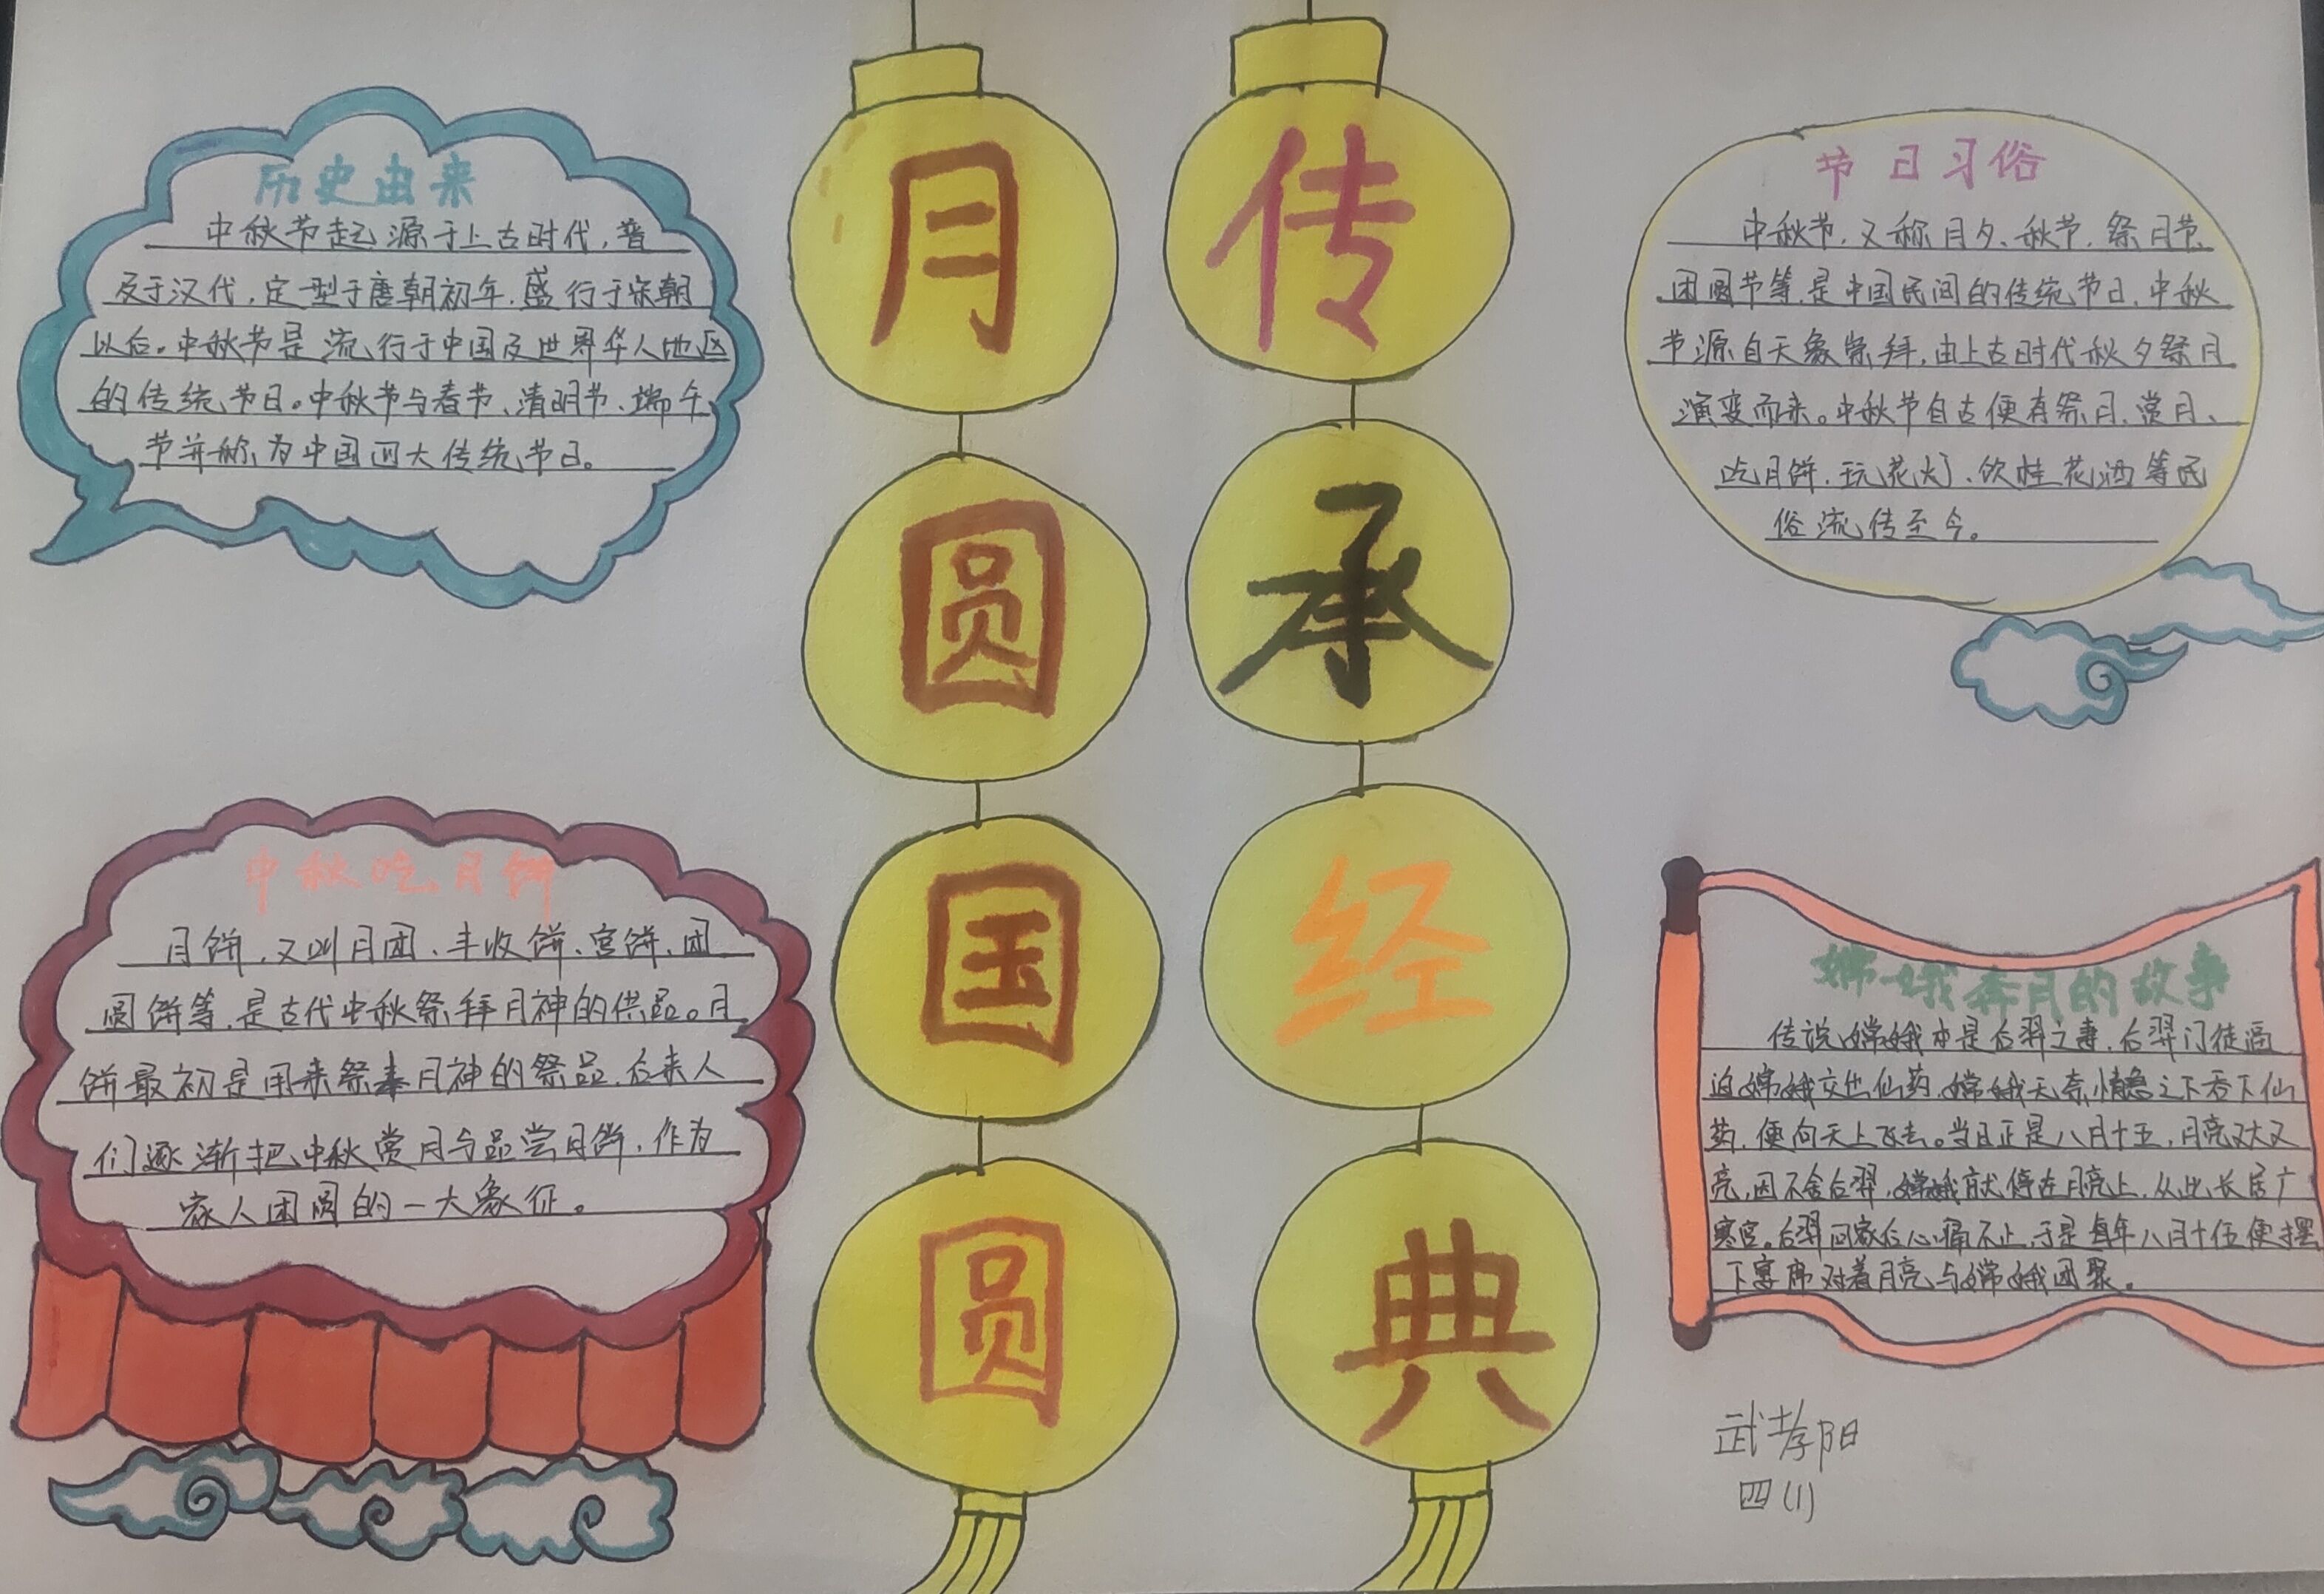 历史由来
中秋节起源于上古时代，普
及于汉代，定型于唐朝初年，盛行于宋朝
以后。中秋节是流行于中国及世界华人地区
的传统节日。中秋节与春节、清明节、端午
节并称为中国四大传统节日。
月圆国圆
传承经典
节日习俗
中秋节，又称月夕、秋节、祭月节、
团圆节等，是中国民间的传统节日，中秋
节源自天象崇拜，由上古时代秋夕祭月
演变而来。中秋节自古便有祭月、赏月、
吃月饼、玩花灯、饮桂花酒等民
俗流传至今。
中秋吃月饼
月饼，又叫月团、丰收饼、宫饼、团
圆饼等，是古代中秋祭拜月神的供品。月
饼最初是用来祭奉月神的祭品，后来人
们逐渐把中秋赏月与品尝月饼，作为
家人团圆的一大象征。
嫦娥奔月的故事
传说嫦娥本是后羿之妻，后羿门徒逼
迫嫦娥交出仙药，嫦娥无奈情急之下吞下仙
药，便向天上飞去。当日正是八月十五，月亮又大又
亮，因不舍后羿，嫦娥就停在月亮上，从此长居广
寒宫。后羿回家后心痛不止，于是每年八月十伍便摆
下宴席对着月亮与嫦娥团聚。
武孝阳
四(1)